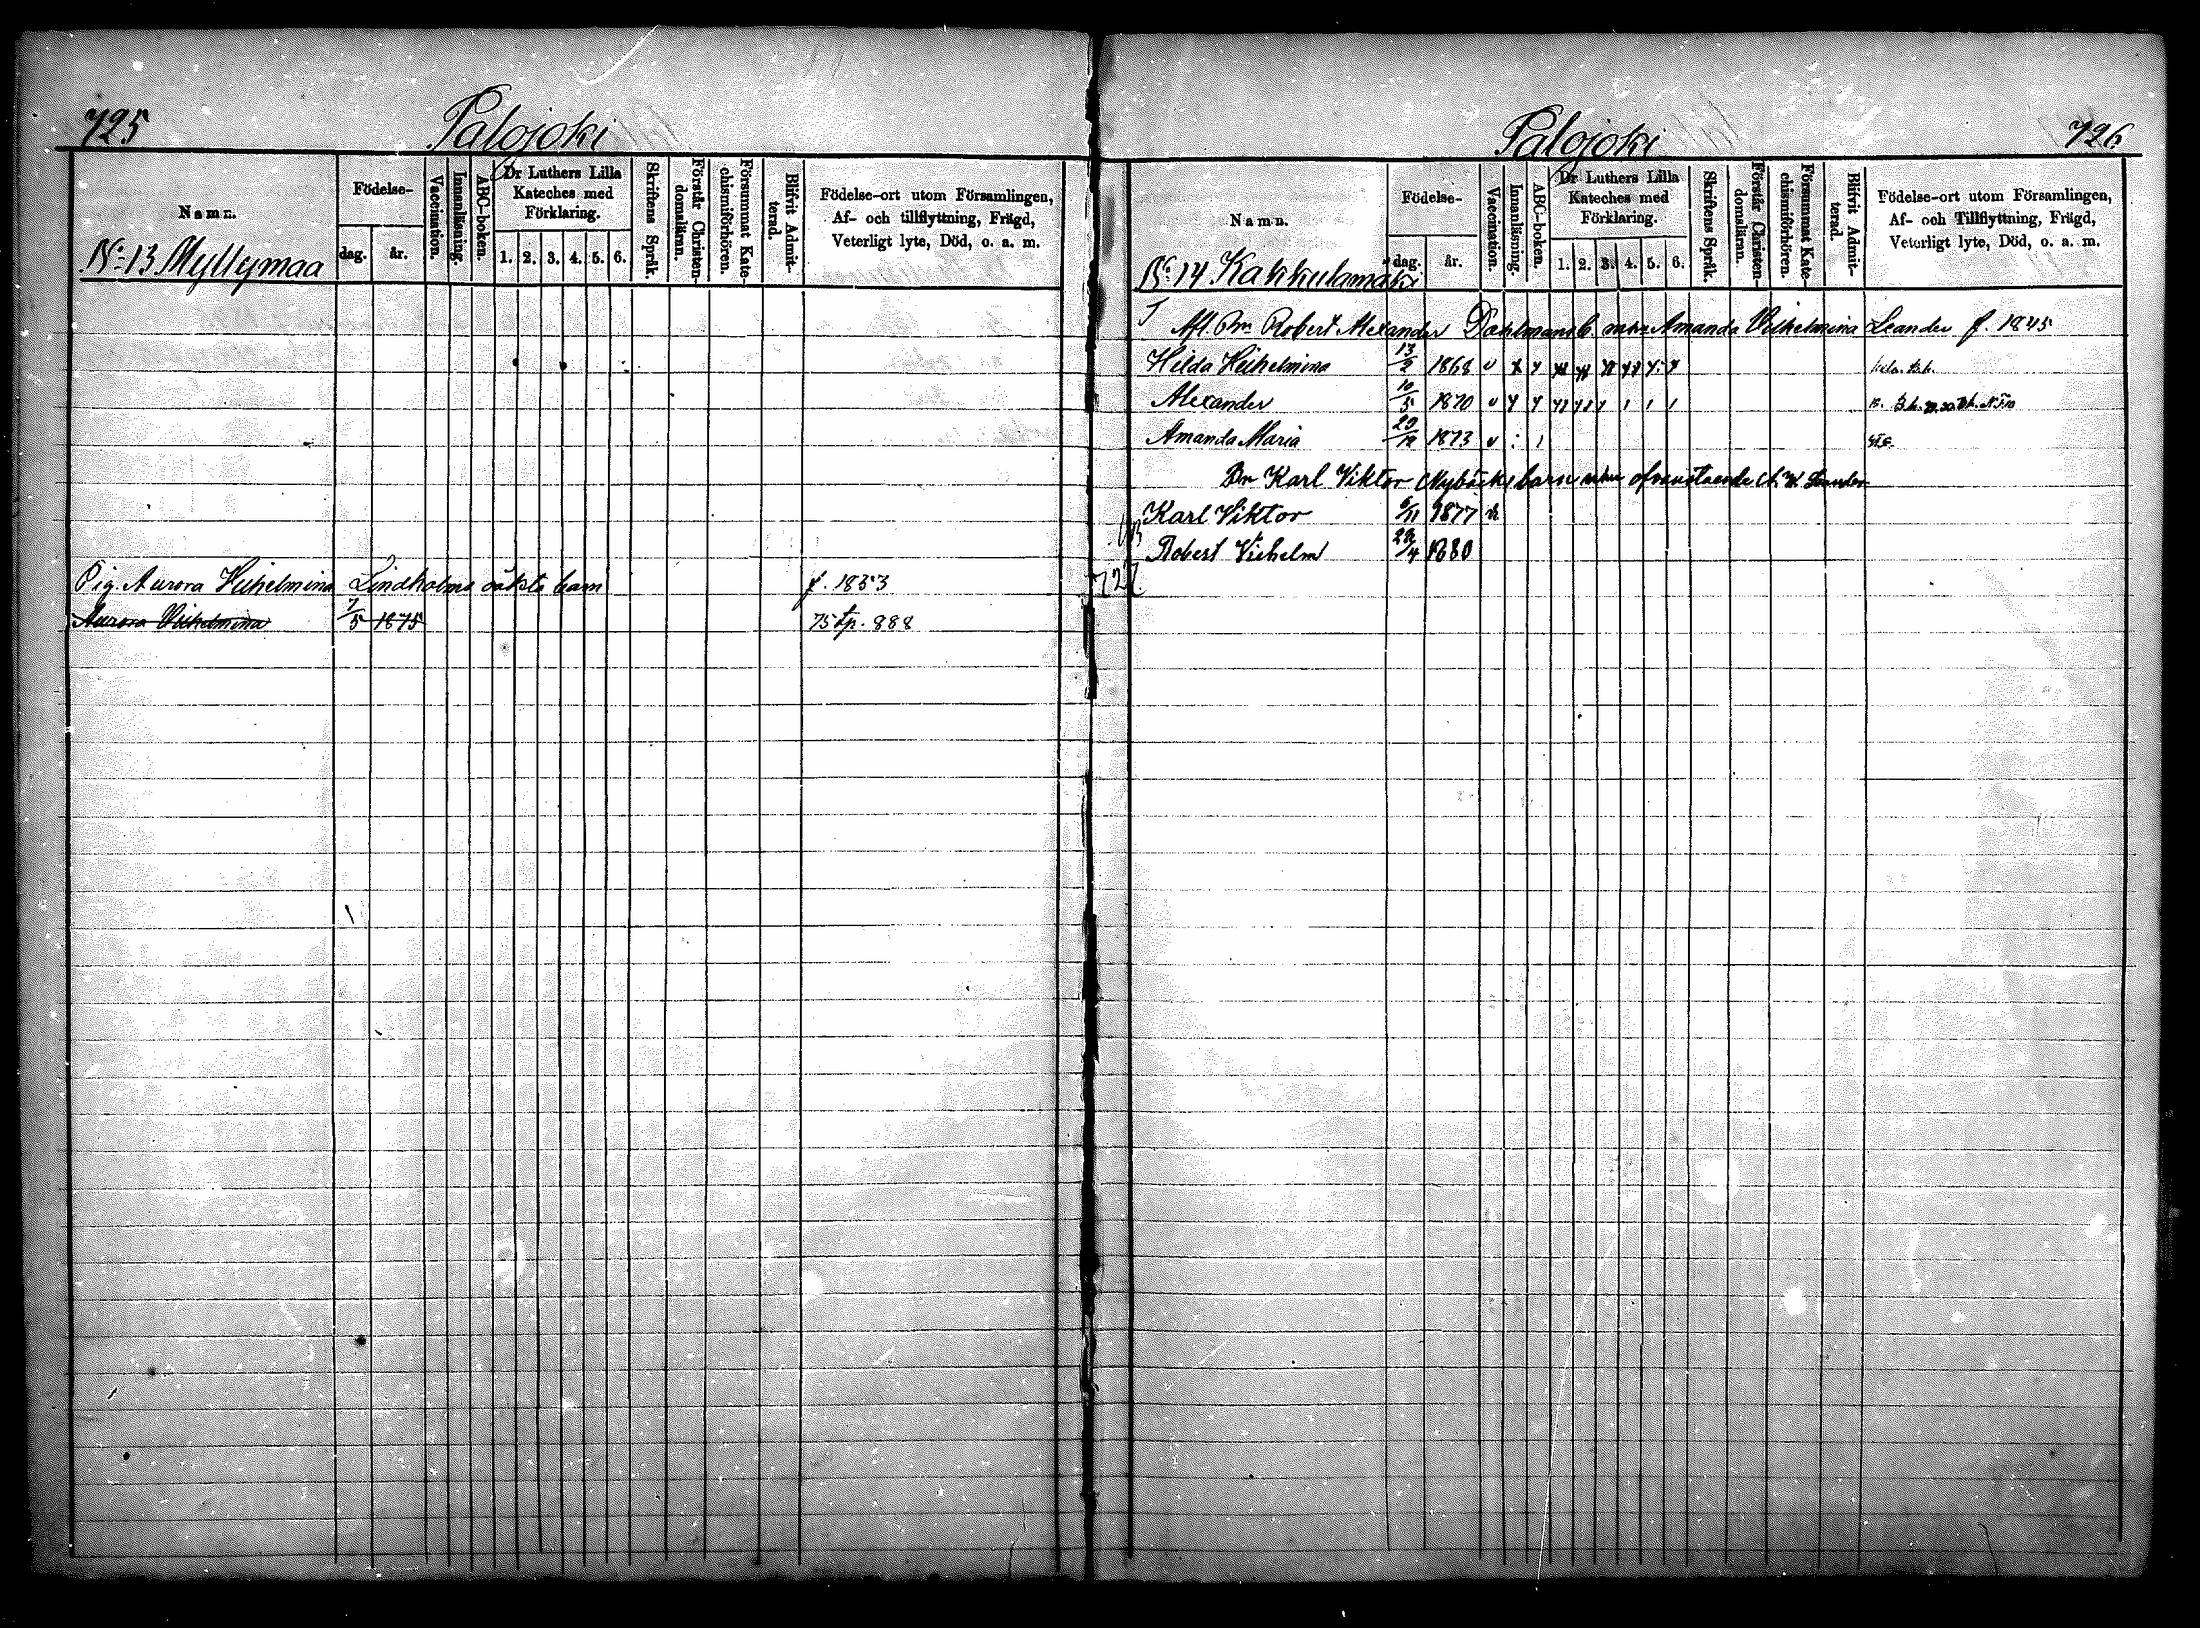 725 Palojoki
Namn.
Födelse-
dag. år.
Vaccination.
Innanläsning.
ABC-boken.
Dr Luthers Lilla
Kateches med
Förklaring.
1. 2. 3. 4. 5. 6.
Skriftens Språk.
Förstår Christen-
domsläran.
Försummat Kate-
chismiförhören.
Blifvit Admit-
terad.
Födelse-ort utom Församlingen,
Af- och tillflyttning, Frägd,
Veterligt lyte, Död, o. a. m.
No 13 Myllymaa
Pig. Aurora Vilhelmina Lindholms oäkta barn f. 1853
Aurora Vilhelmina 7/5 1875 75 tp. 888
Palojoki 726
Namn.
Födelse-
dag. år.
Vaccination.
Innanläsning.
ABC-boken.
Dr Luthers Lilla
Kateches med
Förklaring.
1. 2. 3. 4. 5. 6.
Skriftens Språk.
Förstår Christen-
domsläran.
Försummat Kate-
chismiförhören.
Blifvit Admit-
terad.
Födelse-ort utom Församlingen,
Af- och Tillflyttning, Frägd,
Veterligt lyte, Död, o. a. m.
No 14 Kakkulamäki
Afl. Bn Robert Alexander Dahlmans b. Amanda Vilhelmina Leander f. 1845
Hilda Vilhelmina 13/2 1868 v
Alexander 10/5 1870 v
Amanda Maria 1873 v
Bn Karl Viktor Nybäcks barn ofvanstående A. V. Leander
Karl Viktor 6/11 1877
Robert Vilhelm 1880
727